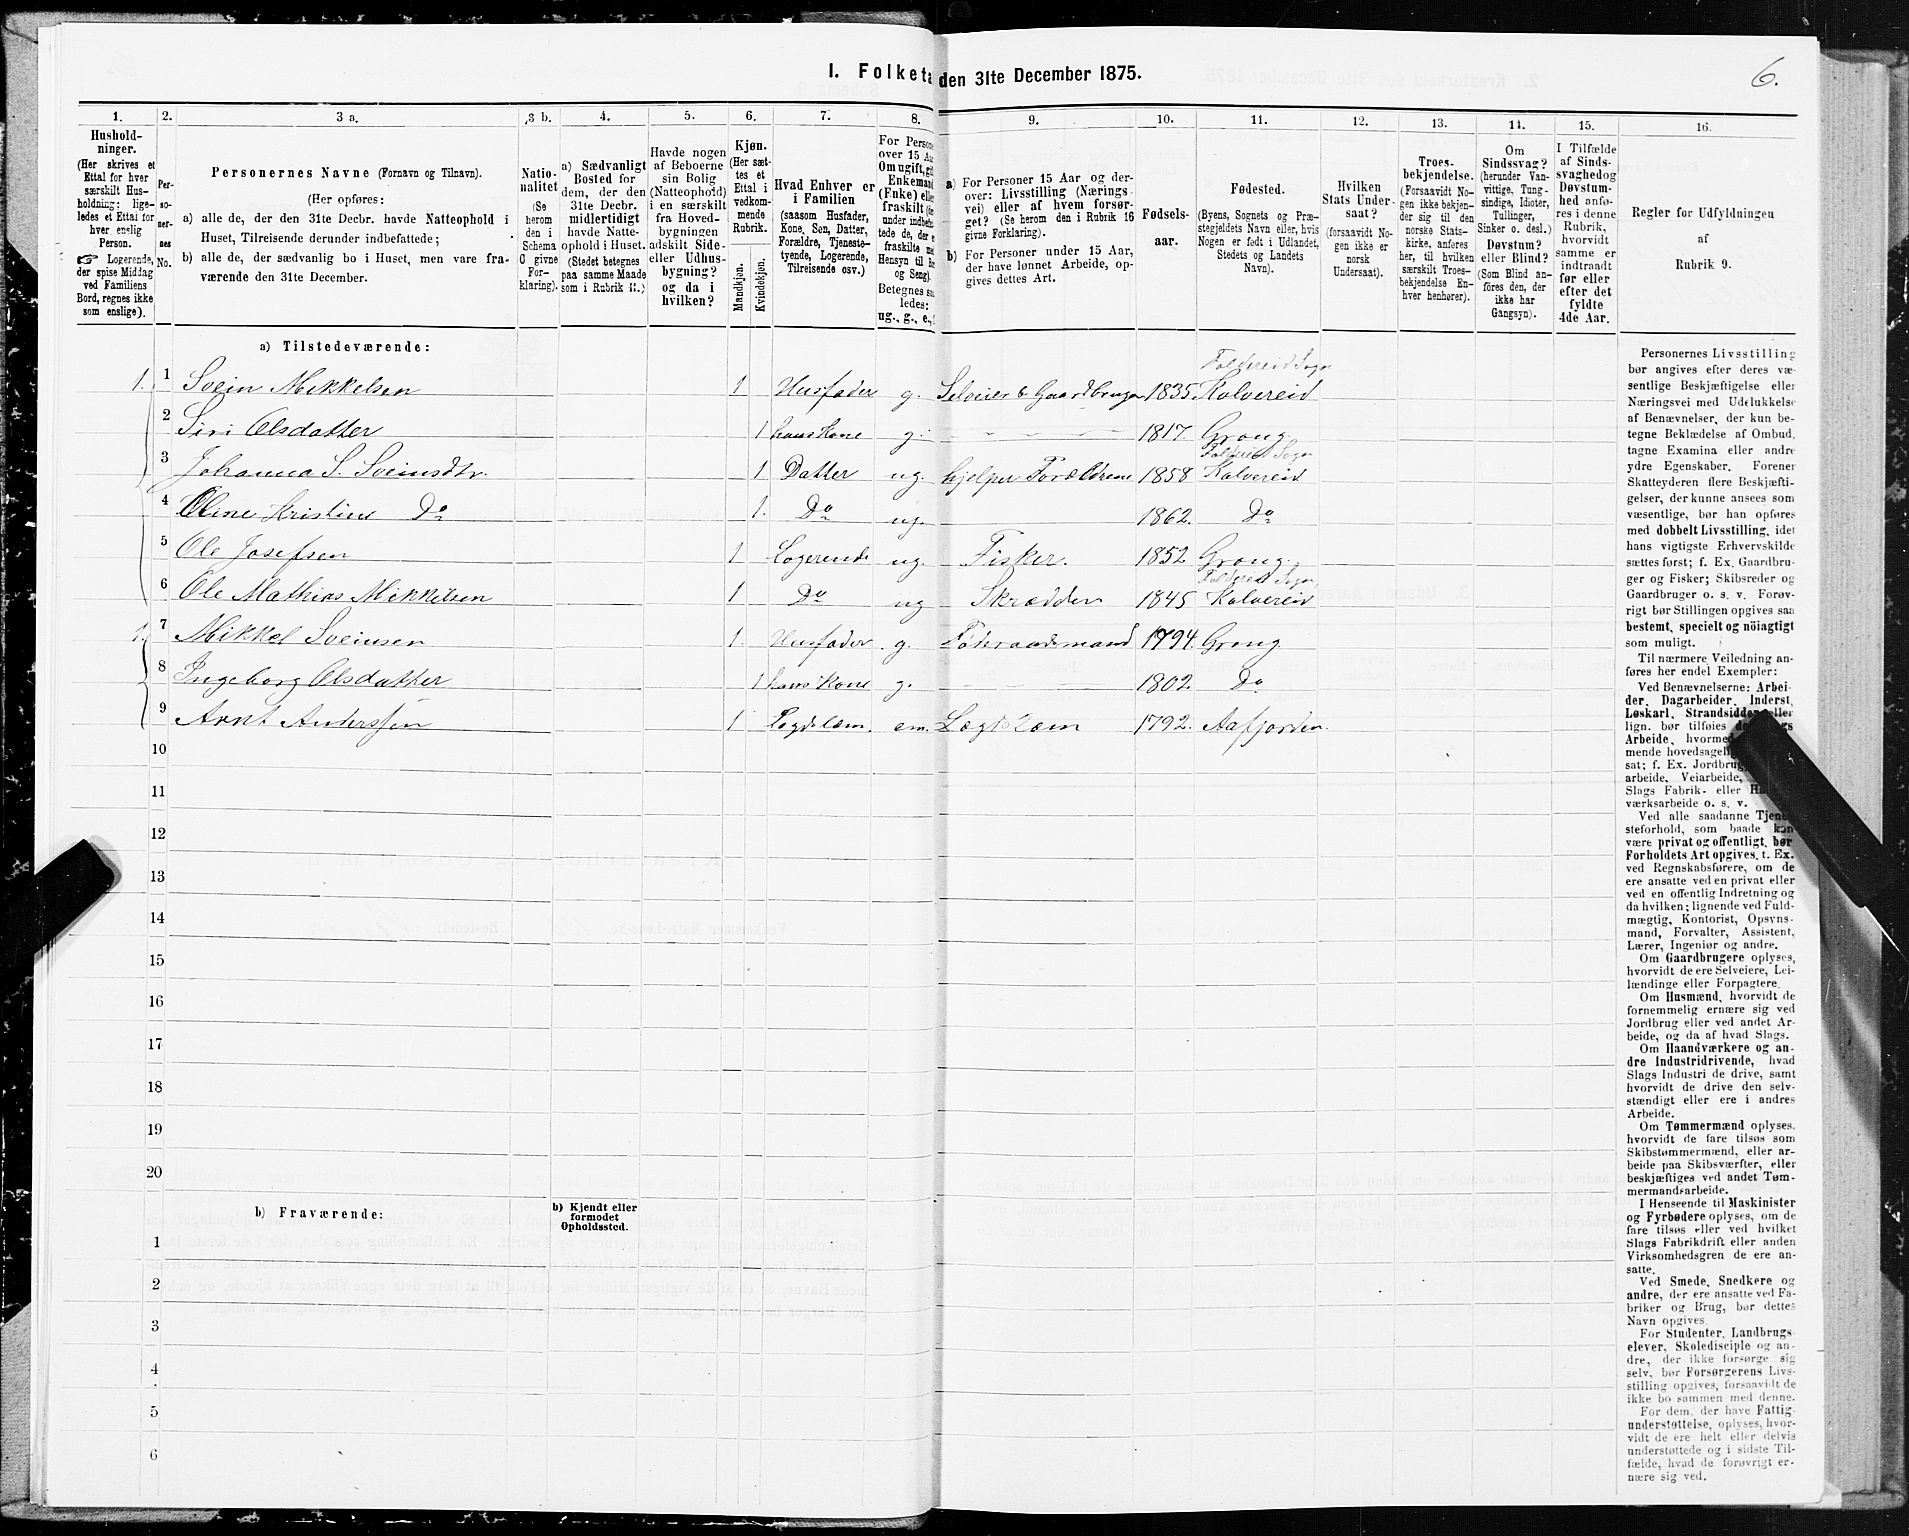 I. Folketa den 31te December 1875.
6.
1. 2. 3 a. 3 b. 4. 5. 6. 7. 8. 9. 10. 11. 12. 13. 14. 15. 16.
Hushold-
ninger.
(Her skrives et
Ettal for hver
særskilt Hus-
holdning; lige-
ledes et Ettal for
hver enslig
Person.
☞ Logerende,
der spise Middag
ved Familiens
Bord, regnes ikke
som enslige).
Per-
so-
ner-
nes
No.
Personernes Navne (Fornavn og Tilnavn).
(Her opføres:
a) alle de, der den 31te Decbr. havde Natteophold i
Huset, Tilreisende derunder indbefattede;
b) alle de, der sædvanlig bo i Huset, men vare fra-
værende den 31te December.
Natio-
nalitet
(Se
herom
den i
Schema
C givne
For-
klaring).
a) Sædvanligt
Bosted for
dem, der den
31te Decbr.
midlertidigt
havde Natte-
ophold i Huset.
(Stedet betegnes
paa samme Maade
som i Rubrik 11.)
Havde nogen
af Beboerne
sin Bolig
(Natteophold)
i en særskilt
fra Hoved-
bygningen
adskilt Side-
eller Udhus-
bygning?
og da i
hvilken?
Kjøn.
(Her sæt-
tes et
Ettal i
vedkom-
mende
Rubrik.
Mandkjøn.
Kvindekjøn.
Hvad Enhver er
i Familien
(saasom Husfader,
Kone, Søn, Datter,
Forældre, Tjeneste-
tyende, Logerende,
Tilreisende osv.)
For Perso
over 15 Aa
Om ugift, gi
Enkemand
(Enke) elle
fraskilt
under indbefat-
tede de, der e
fraskilte me
Hensyn til Bo
og Seng).
Betegnes sa
ledes:
ug., g., e.,
a) For Personer 15 Aar og der-
over: Livsstilling (Nærings-
vei) eller af hvem forsør-
get? (Se herom den i Rubrik 16
givne Forklaring).
b) For Personer under 15 Aar,
der have lønnet Arbeide, op-
gives dettes Art.
Fødsels-
aar.
Fødested.
(Byens, Sognets og Præ-
stegjeldets Navn eller, hvis
Nogen er født i Udlandet,
Stedets og Landets
Navn).
Hvilken
Stats Under-
saat?
(forsaavidt No-
gen ikke er
norsk
Undersaat).
Troes-
bekjendelse.
(Forsaavidt No-
gen ikke bekjen-
der sig til den
norske Stats-
kirke, anføres
her, til hvilken
særskilt Troes-
bekjendelse En-
hver henhører).
Om
Sindssvag?
(herunder Van-
vittige, Tung-
sindige, Idioter,
Tullinger,
Sinker o. desl.)
Døvstum?
eller Blind?
(Som Blind an-
føres den, der
ikke har
Gangsyn).
I Tilfælde
af Sinds-
svaghed og
Døvstum-
hed anfø-
res i denne
Rubrik,
hvorvidt
samme er
indtraadt
før eller
efter det
fyldte
4de Aar.
Regler for Udfyldningen
af
Rubrik 9.
a) Tilstedeværende:
Foldereid Sogn
1. 1 Svein Mikkelsen 1 Husfader g. Selveier & Gaardbruger 1835 Kolvereid
2 Siri Olsdatter 1 hans Kone g. 1817. Grong.
Foldereid Sogn
3 Johanna S. Sveinsdtr. 1 Datter ug. hjelper Forældrene 1858 Kolvereid
4 Oline Kristine Do 1. Do ug. 1862. Do
5 Ole Josefsen 1 Logerende ug. Fisker. 1852 Grong.
Foldereid Sogn.
6 Ole Mathias Mikkelsen 1 Do ug Skrædder 1845 Kolvereid
1. 7 Mikkel Sveinsen 1. Husfader g. Føderaadsmand 1794. Grong
8 Ingeborg Olsdatter 1 hans Kone g. 1802. Do
9 Arnt Anderssen 1 Lægdslem. em. Lægdslem 1792. Aafjorden.
10
11
12
13
14
15
16
17
18
19
20
b) Fraværende:
b) Kjendt eller
formodet
Opholdssted.
1
2
3
4
5
6
Personernes Livsstilling
bør angives efter deres væ-
sentlige Beskjæftigelse eller
Næringsvei med Udelukkelse
af Benævnelser, der kun be-
tegne Beklædelse af Ombud,
tagne Examina eller andre
ydre Egenskaber. Forener
Skatteyderen flere Beskjæfti-
gelser, der kunne ansees som
væsentlige, bør han opføres
med dobbelt Livsstilling, idet
hans vigtigste Erhvervskilde
sættes først; f. Ex. Gaardbru-
ger og Fisker; Skibsreder og
Gaardbruger o. s. v. Forøv-
rigt bør Stillingen opgives saa
bestemt, specielt og nøiagtigt
som muligt.
Til nærmere Veiledning an-
føres her endel Exempler:
Ved Benævnelserne: Arbei-
der, Dagarbeider, Inderst,
Løskarl, Strandsidder eller
lign. bør tilføies
Arbeide, hvormed
mende hovedsagelig
sat; f. Ex. Jordbrug,
arbeide, Veiarbeide,
Slags Fabrik- eller
værksarbeide o. s. v.
Ved alle saadanne Tjene-
steforhold, som baade kan
være privat og offentligt, bør
Forholdets Art opgives, t. Ex.
ved Regnskabsførere, om de
ere ansatte ved en privat eller
ved en offentlig Indretning og
da hvilken; lignende ved Fuld-
mægtig, Kontorist, Opsyns-
mand, Forvalter, Assistent,
Lærer, Ingeniør og andre.
Om Gaardbrugere oplyses,
hvorvidt de ere Selveiere, Lei-
lændinge eller Forpagtere.
Om Husmænd, hvorvidt de
fornemmelig ernære sig ved
Jordbrug eller ved andet Ar-
beide, og da af hvad Slags.
Om Haandværkere og an-
dre Industridrivende, hvad
Slags Industri de drive, samt
hvorvidt de drive den selv-
stændigt eller ere i andres
Arbeide.
Om Tømmermænd oplyses,
hvorvidt de fare tilsøs som
Skibstømmermænd, eller ar-
beide paa Skibsværfter, eller
beskjæftiges ved andet Tøm-
mermandsarbeide.
I Henseende til Maskinister
og Fyrbødere oplyses, om de
fare tilsøs eller ved hvilket
Slags Fabrikdrift eller anden
Virksomhedsgren de ere an-
satte.
Ved Smede, Snedkere og
andre, der ere ansatte ved Fa-
briker og Brug, bør dettes
Navn opgives.
For Studenter, Landbrugs-
elever, Skoledisciple og an-
dre, der ikke forsørge sig
selv, bør Forsørgerens Livs-
stilling opgives, forsaavidt de
ikke bo sammen med denne.
For dem, der have Fattig-
understøttelse, oplyses, hvor-
vidt de ere helt eller delvis
understøttede og i sidste Til-
fælde, hvad de forøvrigt er-
nære sig ved.